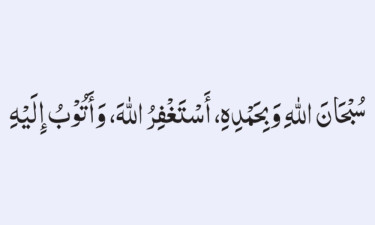 سُبْحَانَ اللهِ وَبِحَمْدِهِ، أَسْتَغْفِرُ اللهَ، وَأَتُوْبُ إِلَيْهِ